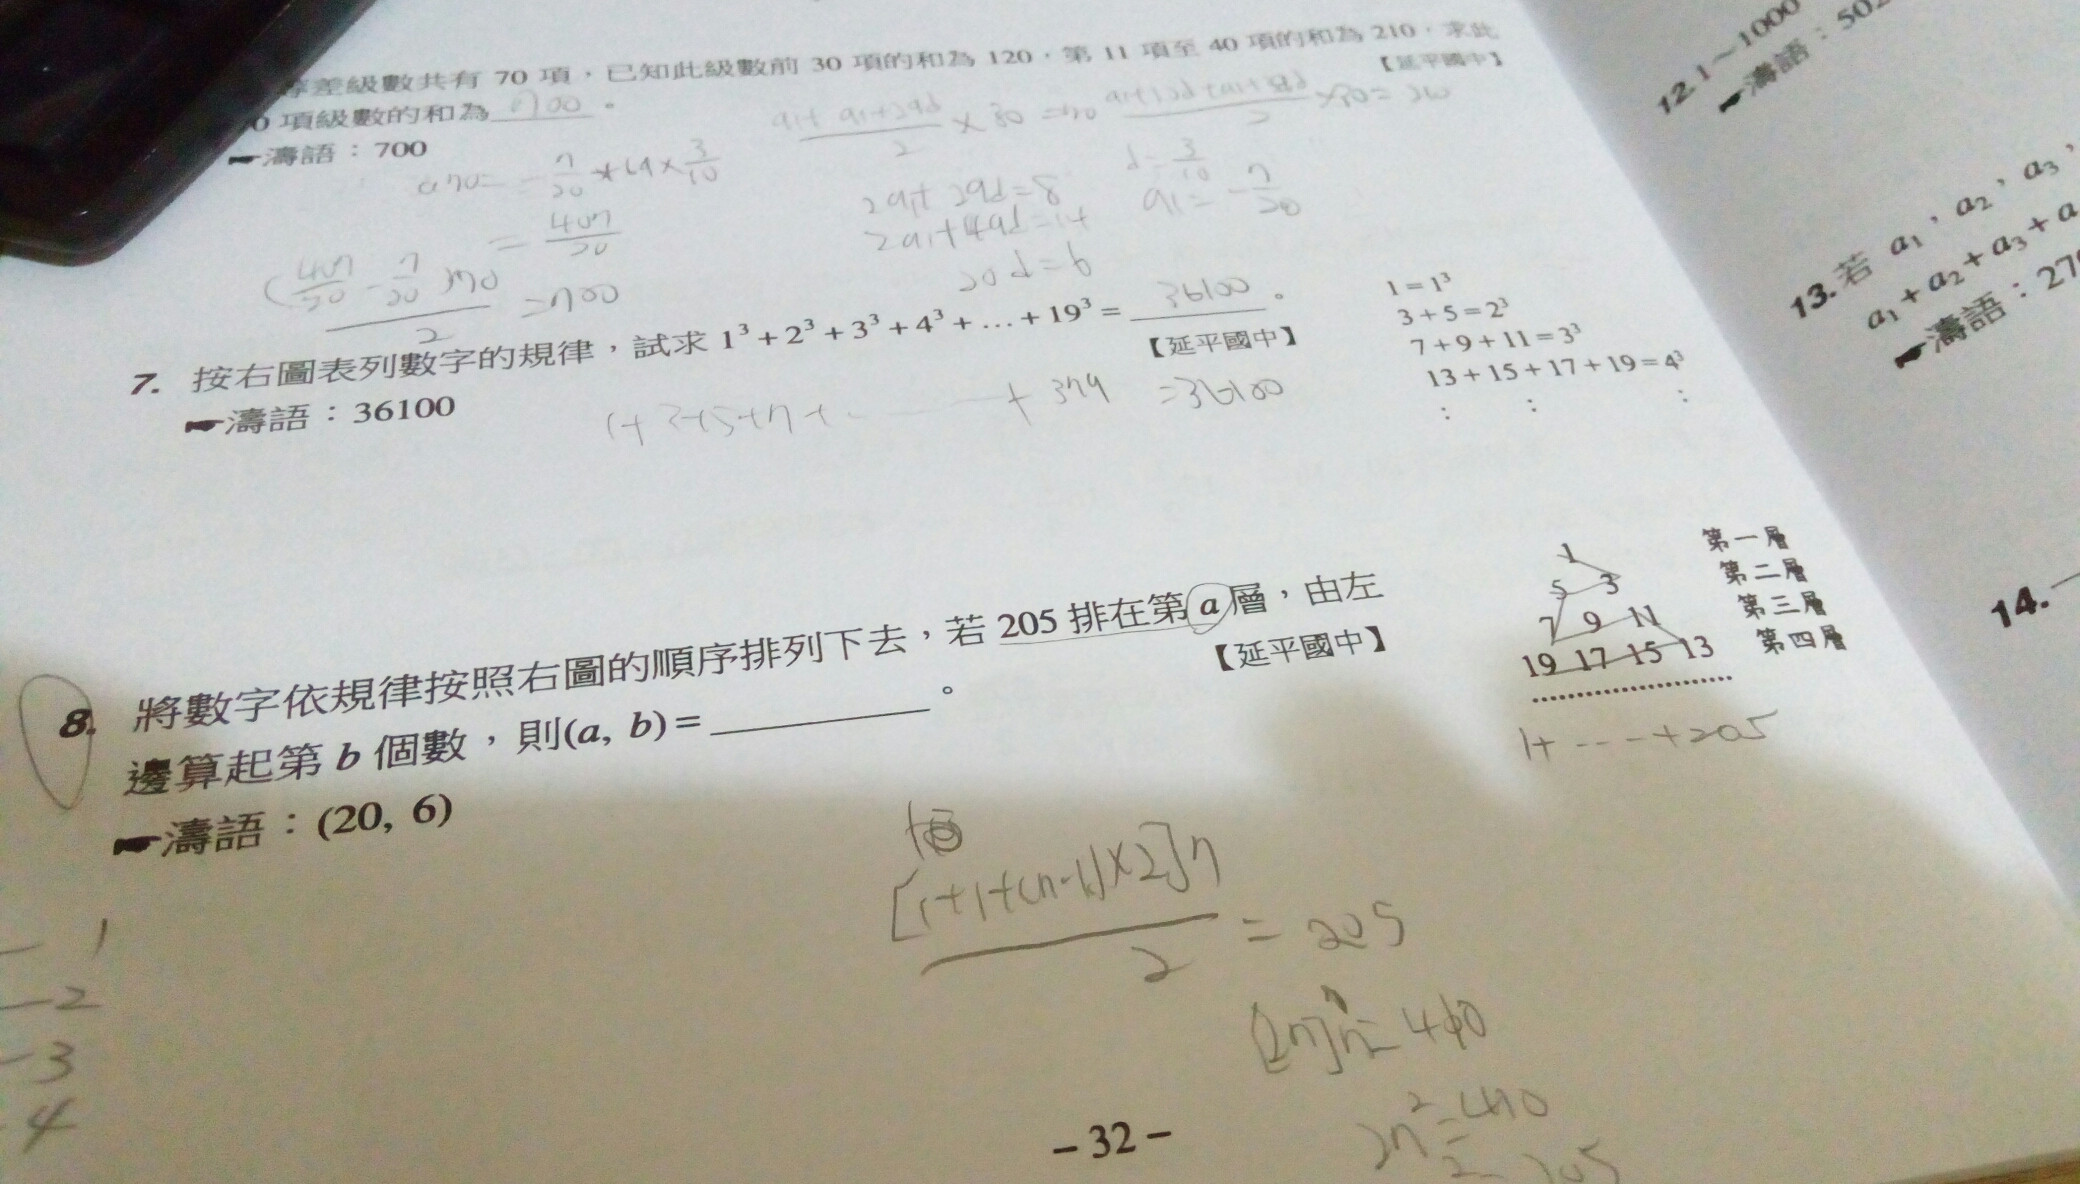 等差級數共有 70 項，已知此級數前 30 項的和為 120，第 11 項至 40 項的和為 210，求此
0 項級數的和為 700 。
【延平國中】
濤語：700
a1+a1+29d / 2 × 30 = 120
2a1+29d=8
2a1+49d=14
20d=6
d=3/10
a1=-7/20
=407/20
(407/20 - 7/20)70 / 2 =700
7. 按右圖表列數字的規律，試求 1³+2³+3³+4³+…+19³= 36100 。
【延平國中】
濤語：36100
1+3+5+7+……+379 =36100
1=1³
3+5=2³
7+9+11=3³
13+15+17+19=4³
⋮ ⋮ ⋮
8. 將數字依規律按照右圖的順序排列下去，若 205 排在第 a 層，由左
邊算起第 b 個數，則(a, b)=______。
【延平國中】
濤語：(20, 6)
1 第一層
5 3 第二層
7 9 11 第三層
19 17 15 13 第四層
1+----+205
[1+1+(n-1)×2]n / 2 = 205
[2n]n=410
2n²=410
1
2
3
4
－32－
12. 1～1000
濤語：502
13. 若 a₁，a₂，a₃，
a₁+a₂+a₃+a
濤語：27
14.